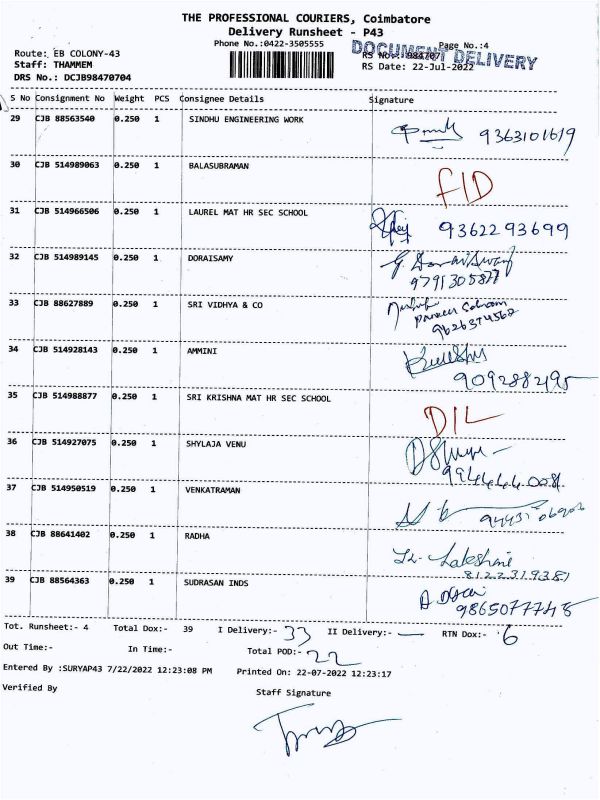 THE PROFESSIONAL COURIERS, Coimbatore
Delivery Runsheet - P43
Phone No.:0422-3505555
Page No.:4
DOCUMENT DELIVERY
Route: EB COLONY-43
RS No.: 984707
Staff: THAMMEM
RS Date: 22-Jul-2022
DRS No.: DCJB98470704
S No Consignment No Weight PCS Consignee Details Signature
29 CJB 88563540 0.250 1 SINDHU ENGINEERING WORK 9363101619
30 CJB 514989063 0.250 1 BALASUBRAMAN FID
31 CJB 514966506 0.250 1 LAUREL MAT HR SEC SCHOOL 9362293699
32 CJB 514989145 0.250 1 DORAISAMY
9791305877
33 CJB 88627889 0.250 1 SRI VIDHYA & CO
9626374562
34 CJB 514928143 0.250 1 AMMINI
9092882195
35 CJB 514988877 0.250 1 SRI KRISHNA MAT HR SEC SCHOOL DIL
36 CJB 514927075 0.250 1 SHYLAJA VENU
37 CJB 514950519 0.250 1 VENKATRAMAN
38 CJB 88641402 0.250 1 RADHA Lakshmi
8122319387
39 CJB 88564363 0.250 1 SUDRASAN INDS
9865077748
Tot. Runsheet:- 4 Total Dox:- 39 I Delivery:- 33 II Delivery:- — RTN Dox:- 6
Out Time:- In Time:- Total POD:- 22
Entered By :SURYAP43 7/22/2022 12:23:08 PM Printed On: 22-07-2022 12:23:17
Verified By Staff Signature